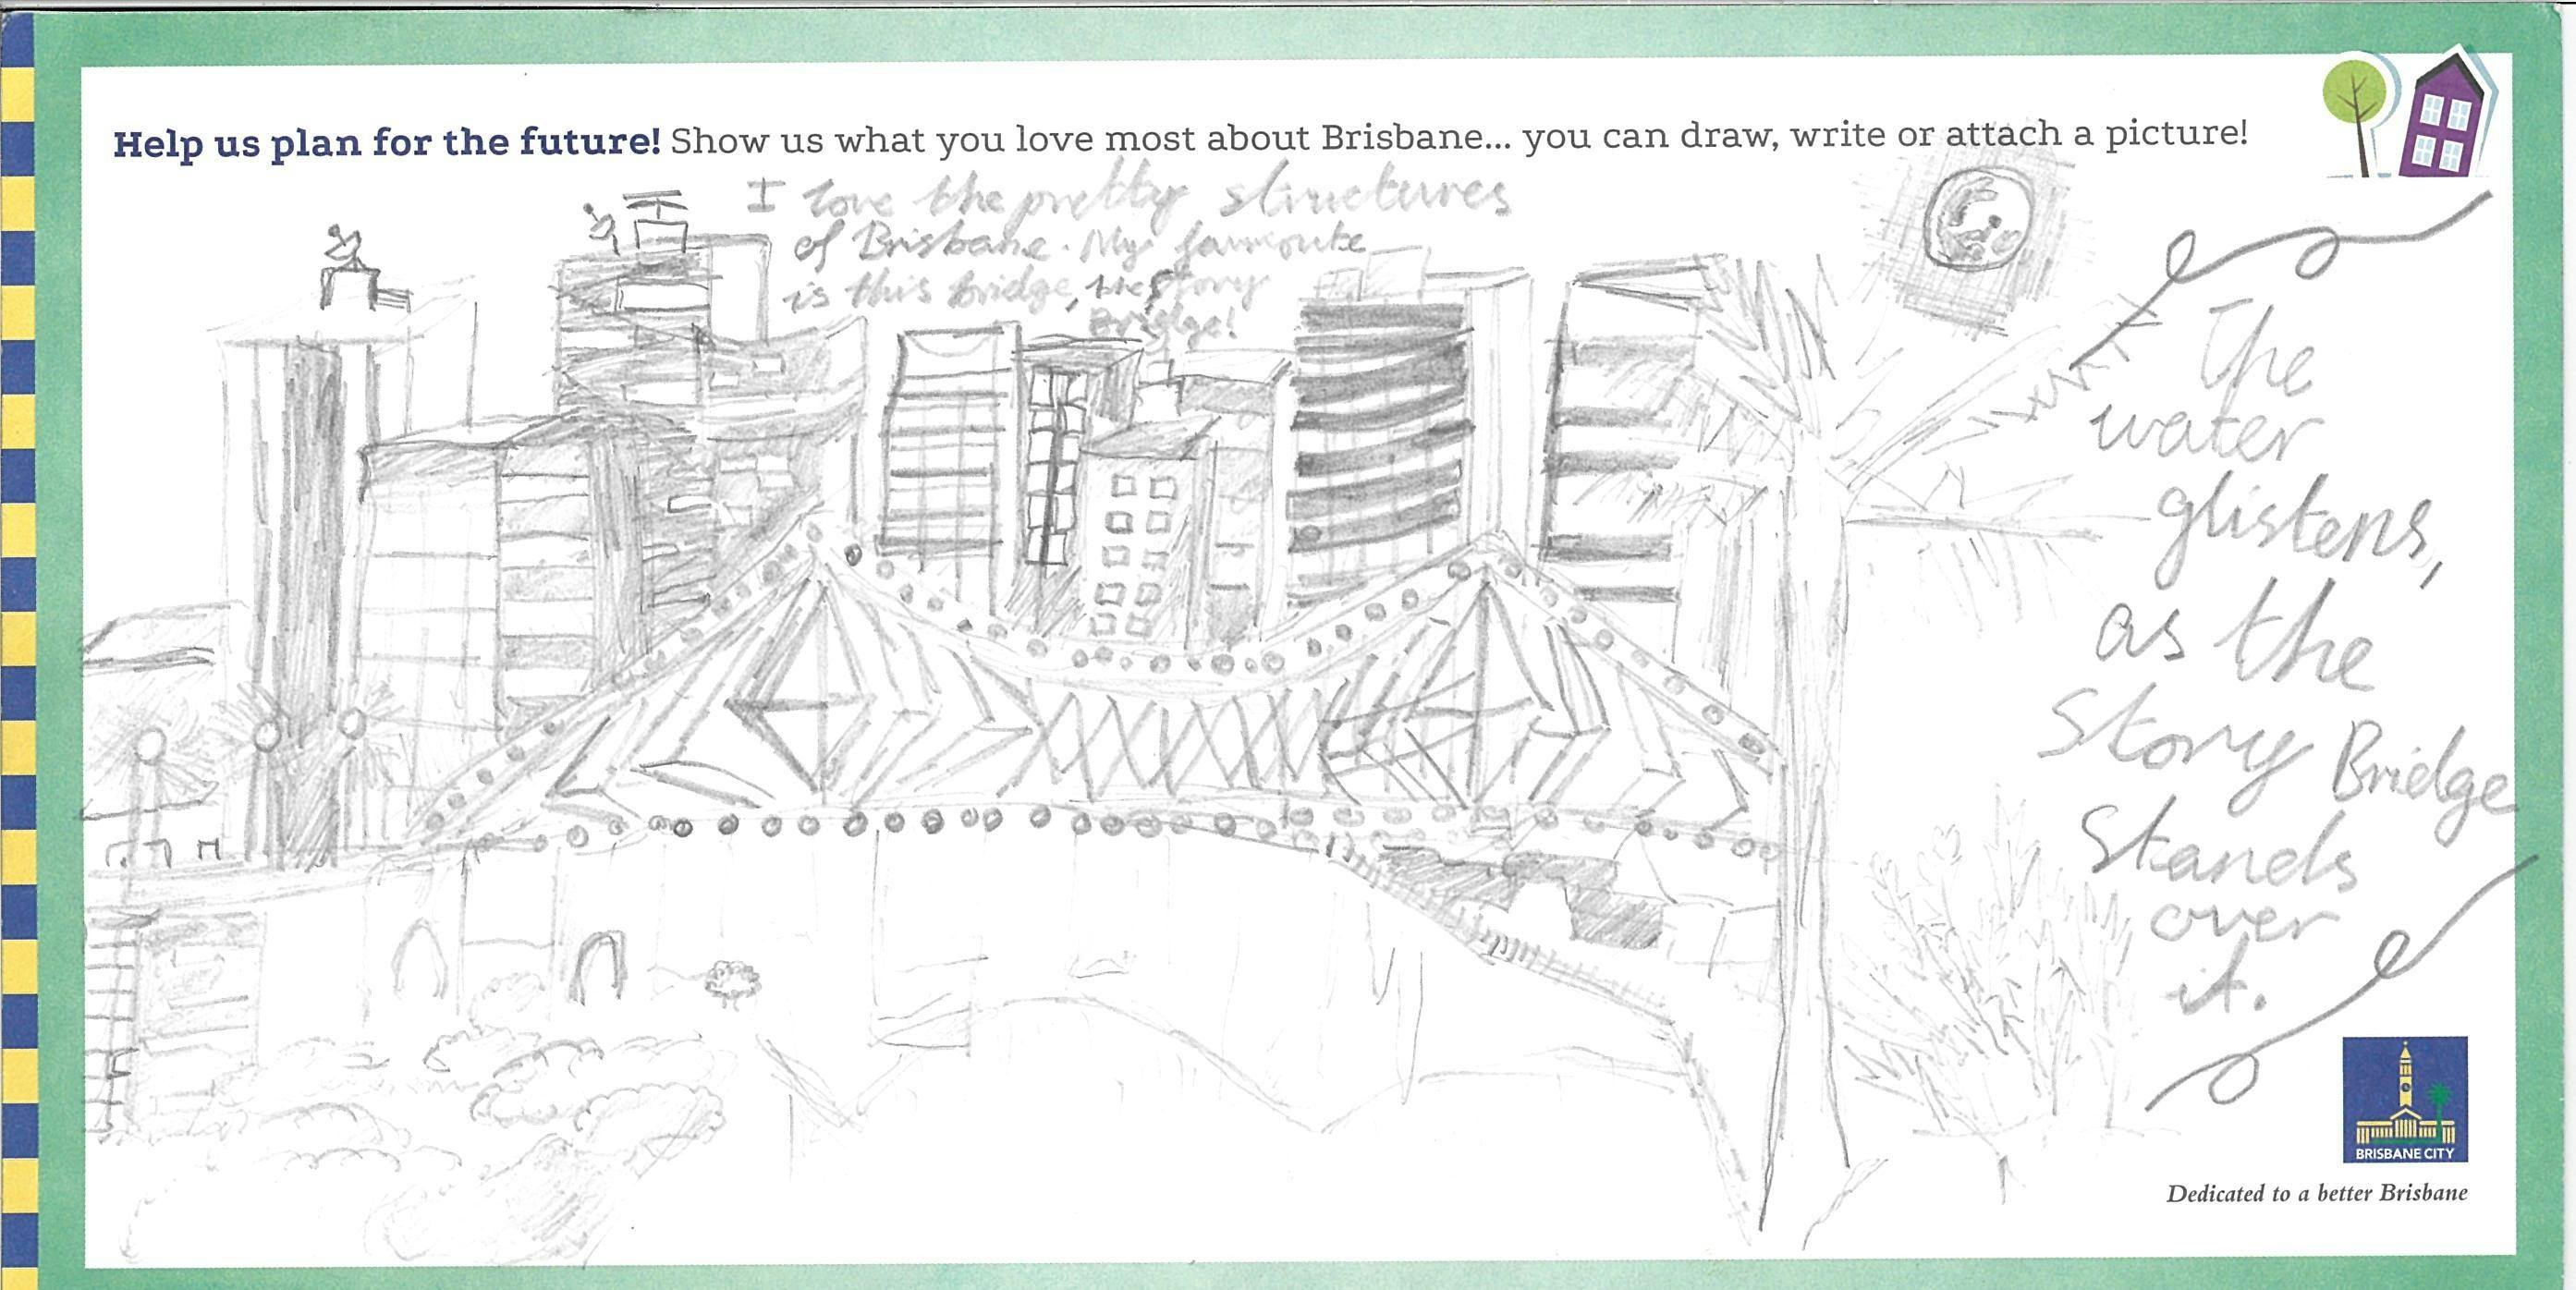 Help us plan for the future! Show us what you love most about Brisbane... you can draw, write or attach a picture!
I love the pretty structures
of Brisbane. My favourite
is this bridge, the Story
Bridge!
The
water
glistens,
as the
Story Bridge
Stands
over
it.
BRISBANE CITY
Dedicated to a better Brisbane